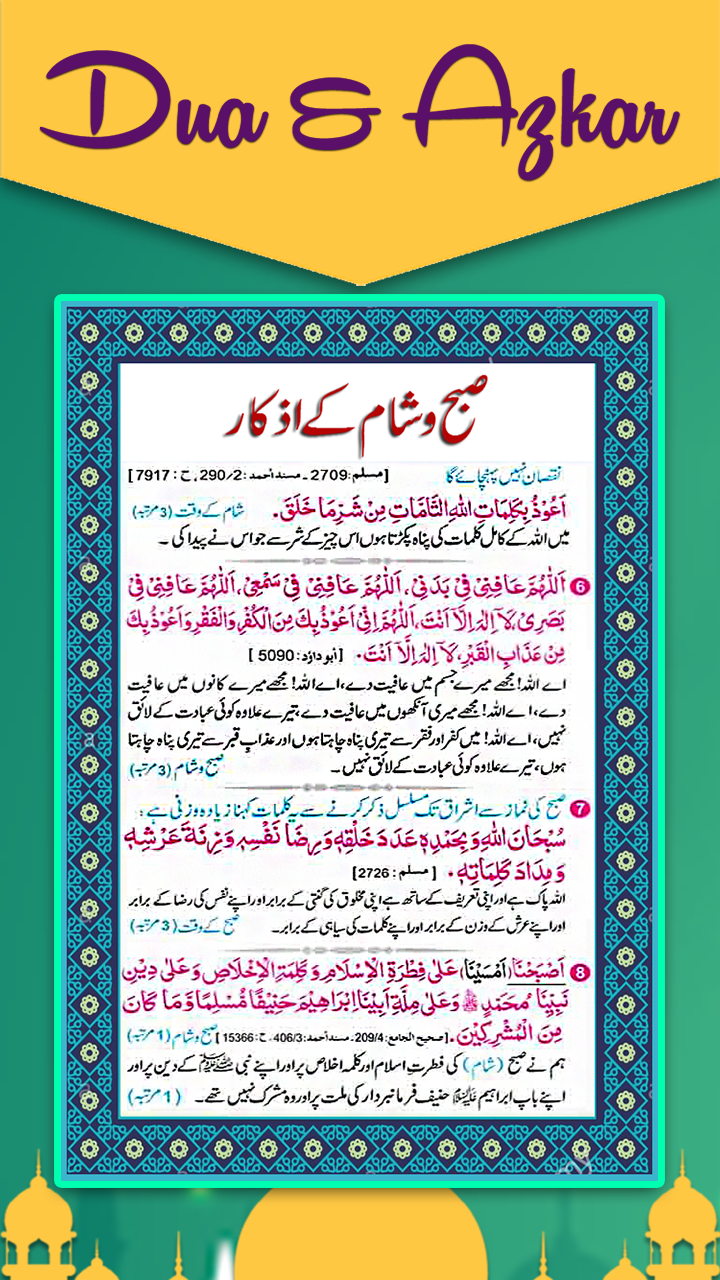 Dua & Azkar
صبح و شام کے اذکار
نقصان نہیں پہنچائے گا [مسلم:2709۔ مسند احمد:290/2، ح:7917]
اَعُوْذُ بِكَلِمَاتِ اللهِ التَّامَّاتِ مِنْ شَرِّ مَا خَلَقَ. شام کے وقت (3 مرتبہ)
میں اللہ کے کامل کلمات کی پناہ پکڑتا ہوں اس چیز کے شر سے جو اس نے پیدا کی ۔
6 اَللّٰهُمَّ عَافِنِيْ فِيْ بَدَنِيْ، اَللّٰهُمَّ عَافِنِيْ فِيْ سَمْعِيْ، اَللّٰهُمَّ عَافِنِيْ فِيْ
بَصَرِيْ، لَاۤ اِلٰهَ اِلَّاۤ اَنْتَ، اَللّٰهُمَّ اِنِّيْ اَعُوْذُبِكَ مِنَ الْكُفْرِ وَالْفَقْرِ وَاَعُوْذُبِكَ
مِنْ عَذَابِ الْقَبْرِ، لَاۤ اِلٰهَ اِلَّاۤ اَنْتَ. [ابو داؤد:5090]
اے اللہ! مجھے میرے جسم میں عافیت دے، اے اللہ! مجھے میرے کانوں میں عافیت
دے، اے اللہ! مجھے میری آنکھوں میں عافیت دے، تیرے علاوہ کوئی عبادت کے لائق
نہیں، اے اللہ! میں کفر اور فقر سے تیری پناہ چاہتا ہوں اور عذاب قبر سے تیری پناہ چاہتا
ہوں، تیرے علاوہ کوئی عبادت کے لائق نہیں۔ صبح و شام (3 مرتبہ)
7 صبح کی نماز سے اشراق تک مسلسل ذکر کرنے سے یہ کلمات کہنا زیادہ وزنی ہے:
سُبْحَانَ اللهِ وَبِحَمْدِهٖ عَدَدَ خَلْقِهٖ وَرِضَا نَفْسِهٖ وَزِنَةَ عَرْشِهٖ
وَمِدَادَ كَلِمَاتِهٖ. [مسلم:2726]
اللہ پاک ہے اور اپنی تعریف کے ساتھ ہے اپنی مخلوق کی گنتی کے برابر اور اپنے نفس کی رضا کے برابر
اور اپنے عرش کے وزن کے برابر اور اپنے کلمات کی سیاہی کے برابر۔ صبح کے وقت (3 مرتبہ)
8 اَصْبَحْنَا (اَمْسَيْنَا) عَلٰى فِطْرَةِ الْاِسْلَامِ وَكَلِمَةِ الْاِخْلَاصِ وَعَلٰى دِيْنِ
نَبِيِّنَا مُحَمَّدٍ ﷺ وَعَلٰى مِلَّةِ اَبِيْنَا اِبْرَاهِيْمَ حَنِيْفًا مُّسْلِمًا وَّمَا كَانَ
مِنَ الْمُشْرِكِيْنَ. [صحیح الجامع:209/4۔ مسند احمد:406/3، ح:15366] صبح و شام (1 مرتبہ)
ہم نے صبح (شام) کی فطرت اسلام اور کلمہ اخلاص پر اور اپنے نبی ﷺ کے دین پر اور
اپنے باپ ابراہیم علیہ السلام حنیف فرمانبردار کی ملت پر اور وہ مشرک نہیں تھے۔ (1 مرتبہ)